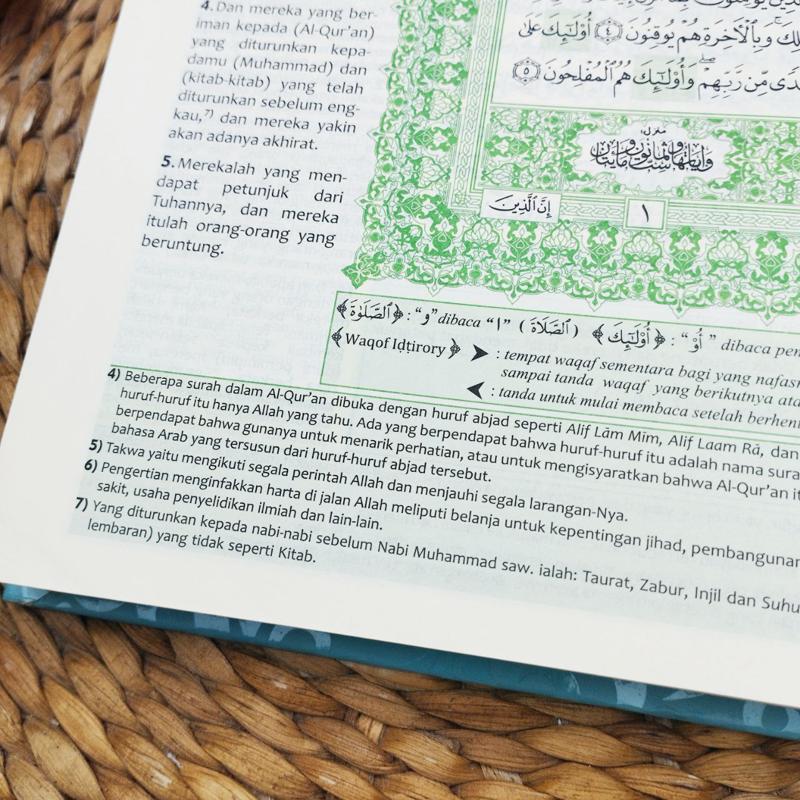 4. Dan mereka yang ber-
iman kepada (Al-Qur'an)
yang diturunkan kepa-
damu (Muhammad) dan
(kitab-kitab) yang telah
diturunkan sebelum eng-
kau,⁷⁾ dan mereka yakin
akan adanya akhirat.
5. Merekalah yang men-
dapat petunjuk dari
Tuhannya, dan mereka
itulah orang-orang yang
beruntung.
وَبِٱلْأَخِرَةِ هُمْ يُوقِنُونَ ٤ أُو۟لَـٰٓئِكَ عَلَىٰ
مِّن رَّبِّهِمْ ۖ وَأُو۟لَـٰٓئِكَ هُمُ ٱلْمُفْلِحُونَ ٥
إِنَّ ٱلَّذِينَ
١
﴿ٱلصَّلَوٰةَ﴾ : "و" dibaca "ا" ( ٱلصَّلَاةَ ) ﴿أُو۟لَـٰٓئِكَ﴾ : "أُو" dibaca
﴿Waqof Iḍṭirory﴾ ➤ : tempat waqaf sementara bagi yang
sampai tanda waqaf yang berikutnya
➤ : tanda untuk mulai membaca setelah
4) Beberapa surah dalam Al-Qur'an dibuka dengan huruf abjad seperti Alif Lām Mīm, Alif Laam Rā, dan
huruf-huruf itu hanya Allah yang tahu. Ada yang berpendapat bahwa huruf-huruf itu adalah nama
berpendapat bahwa gunanya untuk menarik perhatian, atau untuk mengisyaratkan bahwa Al-Qur'an
bahasa Arab yang tersusun dari huruf-huruf abjad tersebut.
5) Takwa yaitu mengikuti segala perintah Allah dan menjauhi segala larangan-Nya.
6) Pengertian menginfakkan harta di jalan Allah meliputi belanja untuk kepentingan jihad, pembangunan
sakit, usaha penyelidikan ilmiah dan lain-lain.
7) Yang diturunkan kepada nabi-nabi sebelum Nabi Muhammad saw. ialah: Taurat, Zabur, Injil dan
lembaran) yang tidak seperti Kitab.